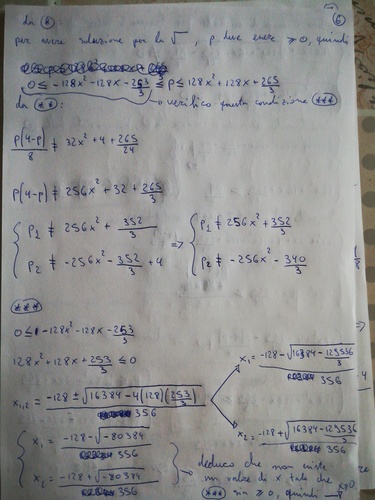 da (*) (6)
per avere soluzione per la √ , p deve essere ≥ 0, quindi
0 ≤ -128x² - 128x - 253/3 ≤ p ≤ 128x² + 128x + 265/3
da (**): → verifico questa condizione (***)
p(4-p)/8 ≠ 32x² + 4 + 265/24
p(4-p) ≠ 256x² + 32 + 265/3
{ p₁ ≠ 256x² + 352/3 => { p₁ ≠ 256x² + 352/3
p₂ ≠ -256x² - 352/3 + 4 p₂ ≠ -256x² - 340/3
(***)
0 ≤ -128x² - 128x - 253/3
128x² + 128x + 253/3 ≤ 0 x₁ = (-128 - √(16384 - 129536/3))/356
x₁,₂ = (-128 ± √(16384 - 4(128)(253/3)))/356
x₂ = (-128 + √(16384 - 129536/3))/356
{ x₁ = (-128 - √-80384)/356
x₂ = (-128 + √-80384)/356 → deduco che non esiste
un valore di x tale che
(***) sia ≥ 0, quindi